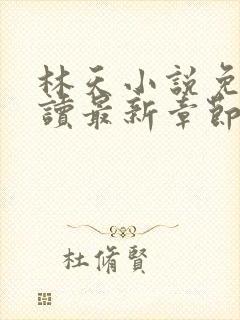 林天小説免
讀最新章節
杜脩賢